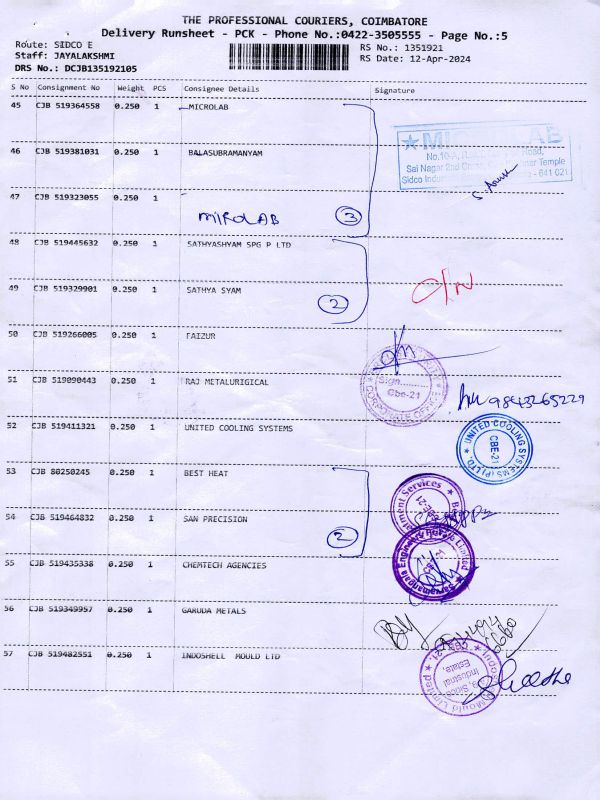 THE PROFESSIONAL COURIERS, COIMBATORE
Delivery Runsheet - PCK - Phone No.:0422-3505555 - Page No.:5
Route: SIDCO E
Staff: JAYALAKSHMI
DRS No.: DCJB135192105
RS No.: 1351921
RS Date: 12-Apr-2024
S No Consignment No Weight PCS Consignee Details Signature
45 CJB 519364558 0.250 1 MICROLAB
46 CJB 519381031 0.250 1 BALASUBRAMANYAM
No.10-A,
Sai Nagar 2nd Temple
Sidco Indus - 641 021
47 CJB 519323055 0.250 1
MIROLAB 3
48 CJB 519445632 0.250 1 SATHYASHYAM SPG P LTD
49 CJB 519329901 0.250 1 SATHYA SYAM
2
50 CJB 519266005 0.250 1 FAIZUR
Sign
Cbe-21
CORPORATE OFFICE
51 CJB 519090443 0.250 1 RAJ METALURIGICAL
9843265229
52 CJB 519411321 0.250 1 UNITED COOLING SYSTEMS
UNITED COOLING SYSTEMS (P) LTD
CBE-21
53 CJB 80250245 0.250 1 BEST HEAT
Treatment Services
CBE-21
54 CJB 519464832 0.250 1 SAN PRECISION
2
55 CJB 519435338 0.250 1 CHEMTECH AGENCIES
56 CJB 519349957 0.250 1 GARUDA METALS
57 CJB 519482551 0.250 1 INDOSHELL MOULD LTD
Mould Limited
Industrial
Estate,